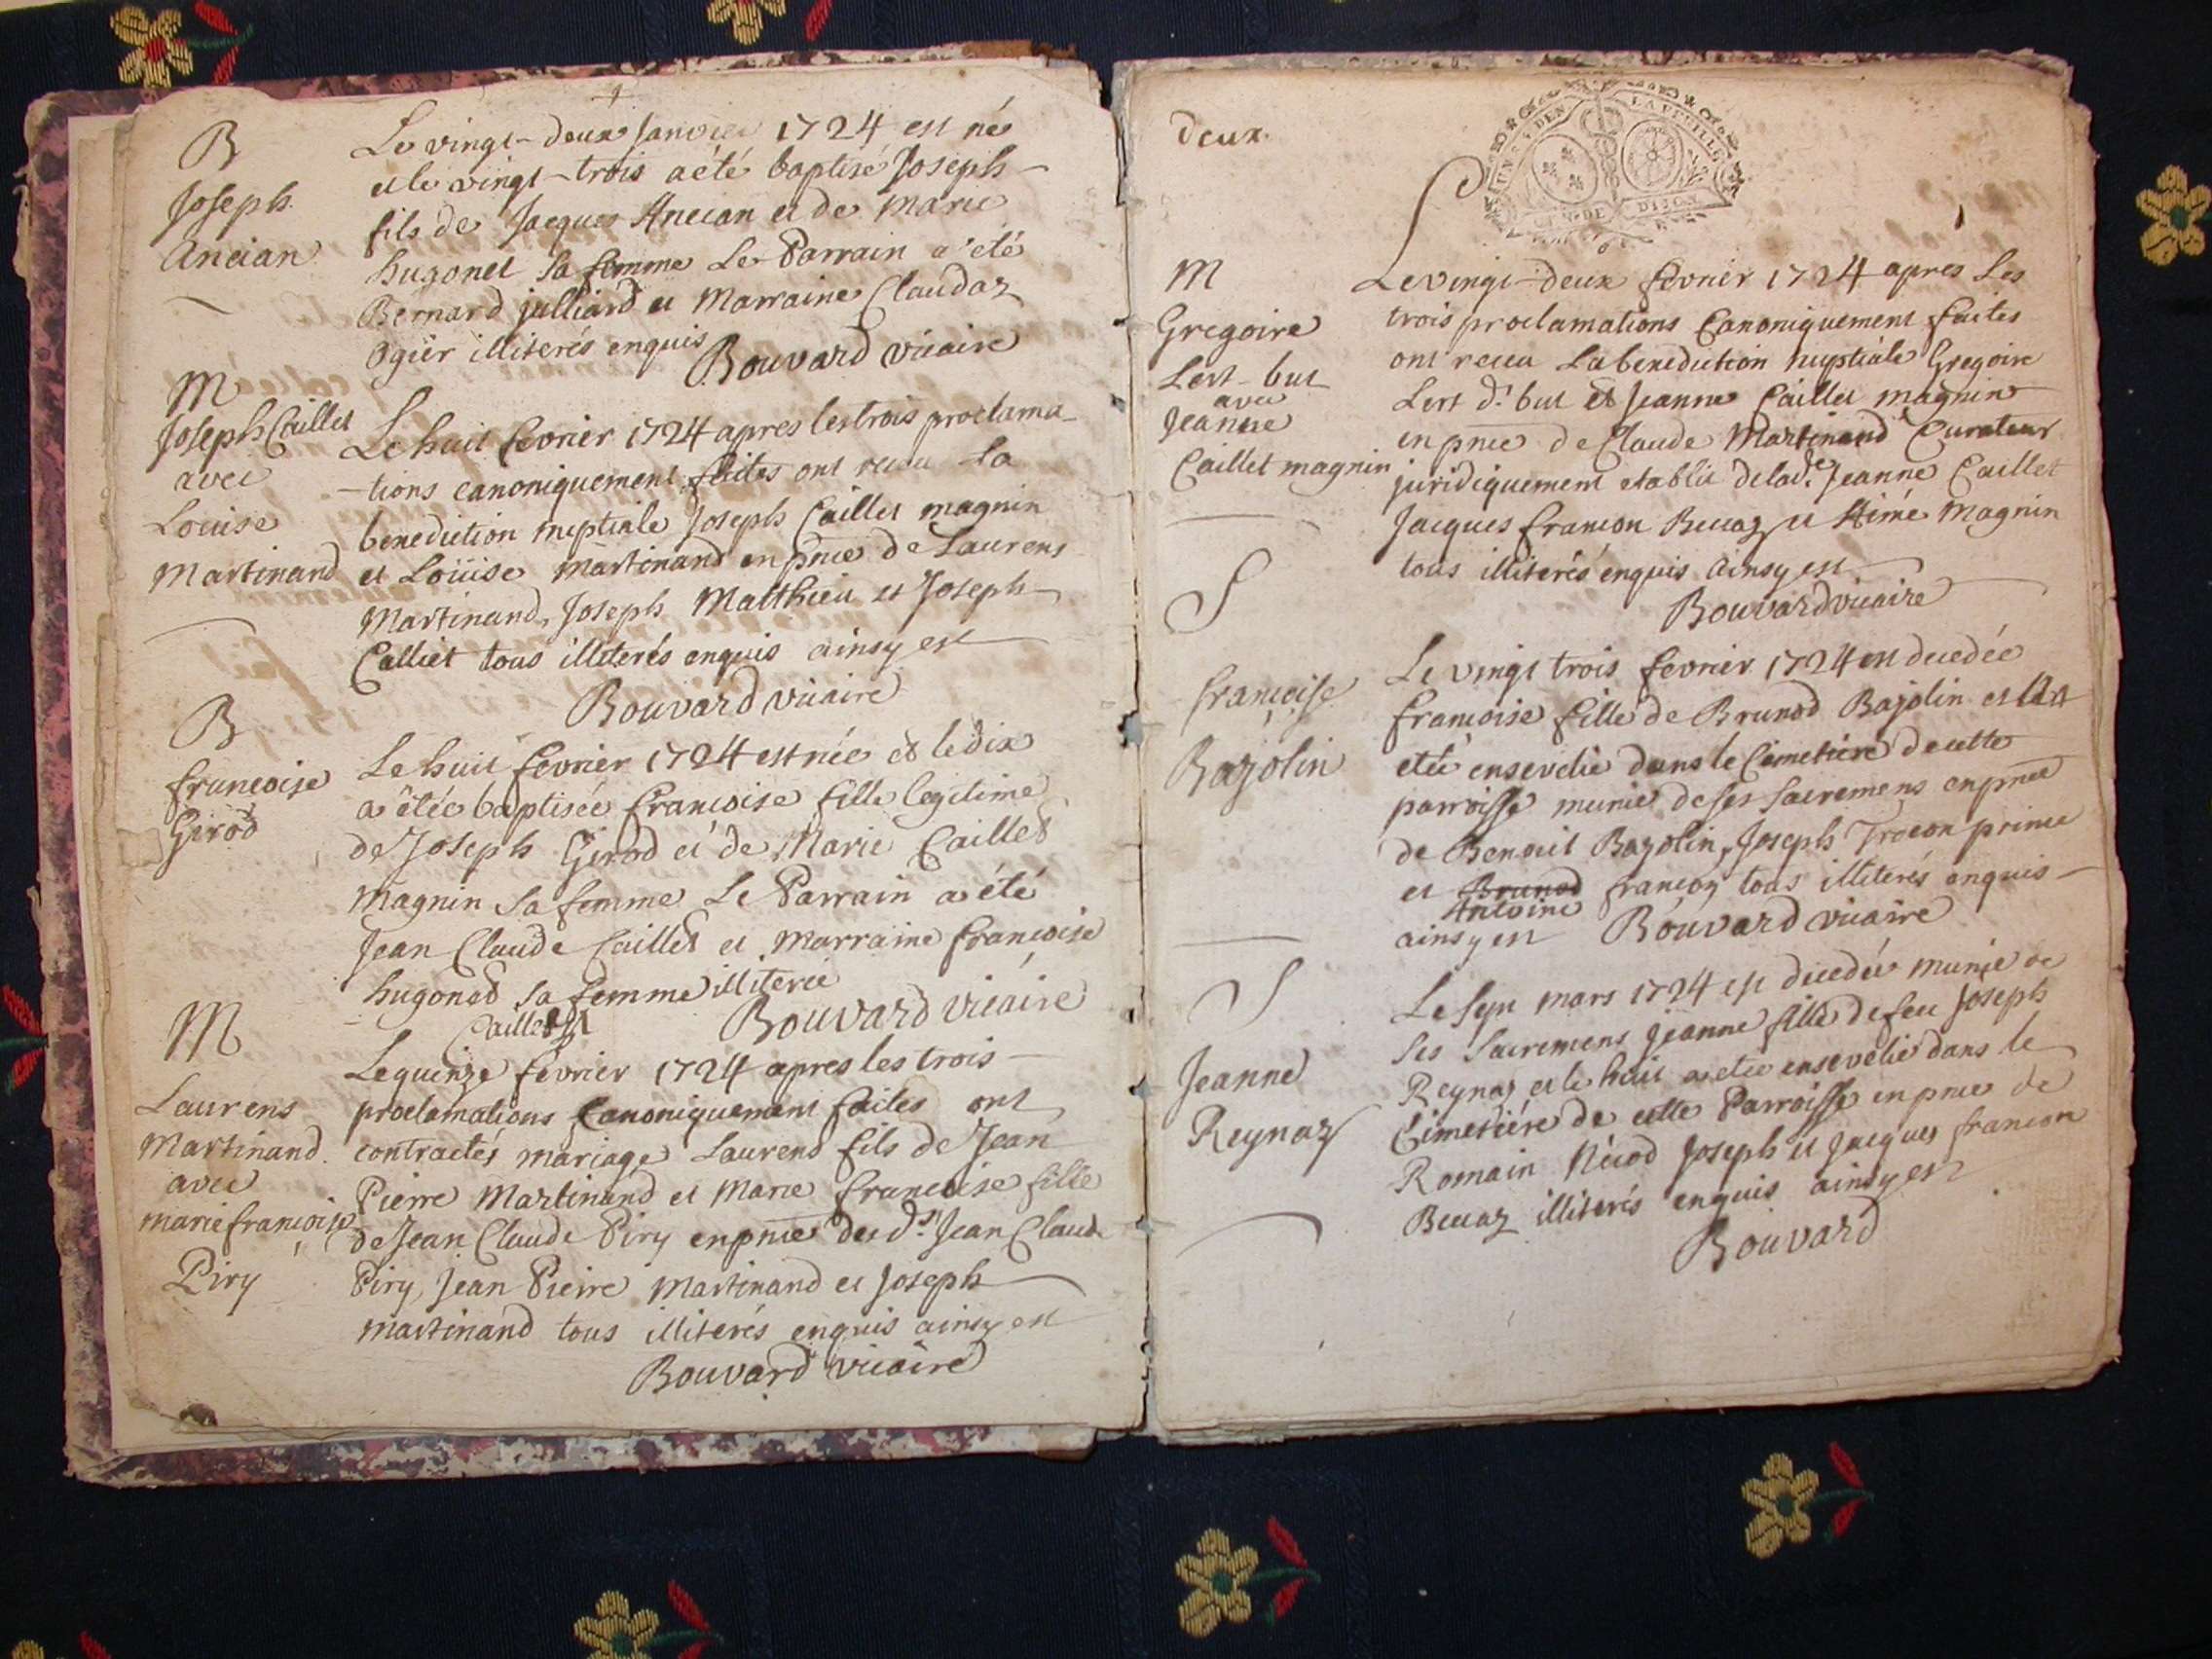 B
Joseph
Ancian
Le vingt-deux Janvier 1724 est né
et le vingt-trois a été baptisé Joseph
fils de Jacques Ancian et de Marie
hugonet sa femme Le Parrain a été
Bernard julliard et Marraine Claudaz
Ogier illiterés enquis
Bouvard vicaire
M
Joseph Caillet
avec
Louise
Martinand
Le huit fevrier 1724 apres les trois proclama-
-tions canoniquement faites ont receu la
benediction nuptiale Joseph Caillet magnin
et Loüise martinand en pnce de Laurens
Martinand, Joseph Matthieu et Joseph
Calliet tous illiterés enquis ainsy est
Bouvard vicaire
B
francoise
Girod
Le huit fevrier 1724 est née et le dix
a étée baptisée francoise fille legitime
de Joseph Girod et de Marie Caillet
magnin sa femme Le Parrain a été
Jean Claude Caillet et Marraine francoise
hugonod sa femme illiterée
Caillet
Bouvard vicaire
M
Laurens
Martinand
avec
marie francoise
Piry
Le quinze fevrier 1724 apres les trois
proclamations Canoniquement faites ont
contractés mariage Laurens fils de Jean
Pierre Martinand et Marie francoise fille
de Jean Claude Piry en pnce des d.ts Jean Claude
Piry, Jean Pierre martinand et Joseph
martinand tous illiterés enquis ainsy est
Bouvard vicaire
deux
LA FEUILLE
DIJON
M
Gregoire
Lert-but
avec
Jeanne
Caillet magnin
Le vingt-deux fevrier 1724 apres Les
trois proclamations Canoniquement faites
ont receu La benediction nuptiale Gregoire
Lert d.t but et Jeanne Caillet magnin
en pnce de Claude Martinand Curateur
juridiquement etablie de lad.e Jeanne Caillet
Jacques francon Beuaz et Aimé Magnin
tous illiterés enquis ainsy est
Bouvard vicaire
S
francoise
Bazolin
Le vingt trois fevrier 1724 est decedée
francoise fille de Brunod Bajolin et a
etée ensevelie dans le Cimetiere de cette
parroisse munie de ses sacremens en pnce
de Benoit Bazolin, Joseph Trocon prince
et Brunod francon tous illiterés enquis
Antoine
ainsy est Bouvard vicaire
S
Jeanne
Reynaz
Le sept mars 1724 est decedée munie de
ses sacremens jeanne fille de feu Joseph
Reynaz et le huit a etée ensevelie dans le
Cimetiére de cette Parroisse en pnce de
Romain Nicod Joseph et Jacques francon
Beuaz illiterés enquis ainsy est
Bouvard